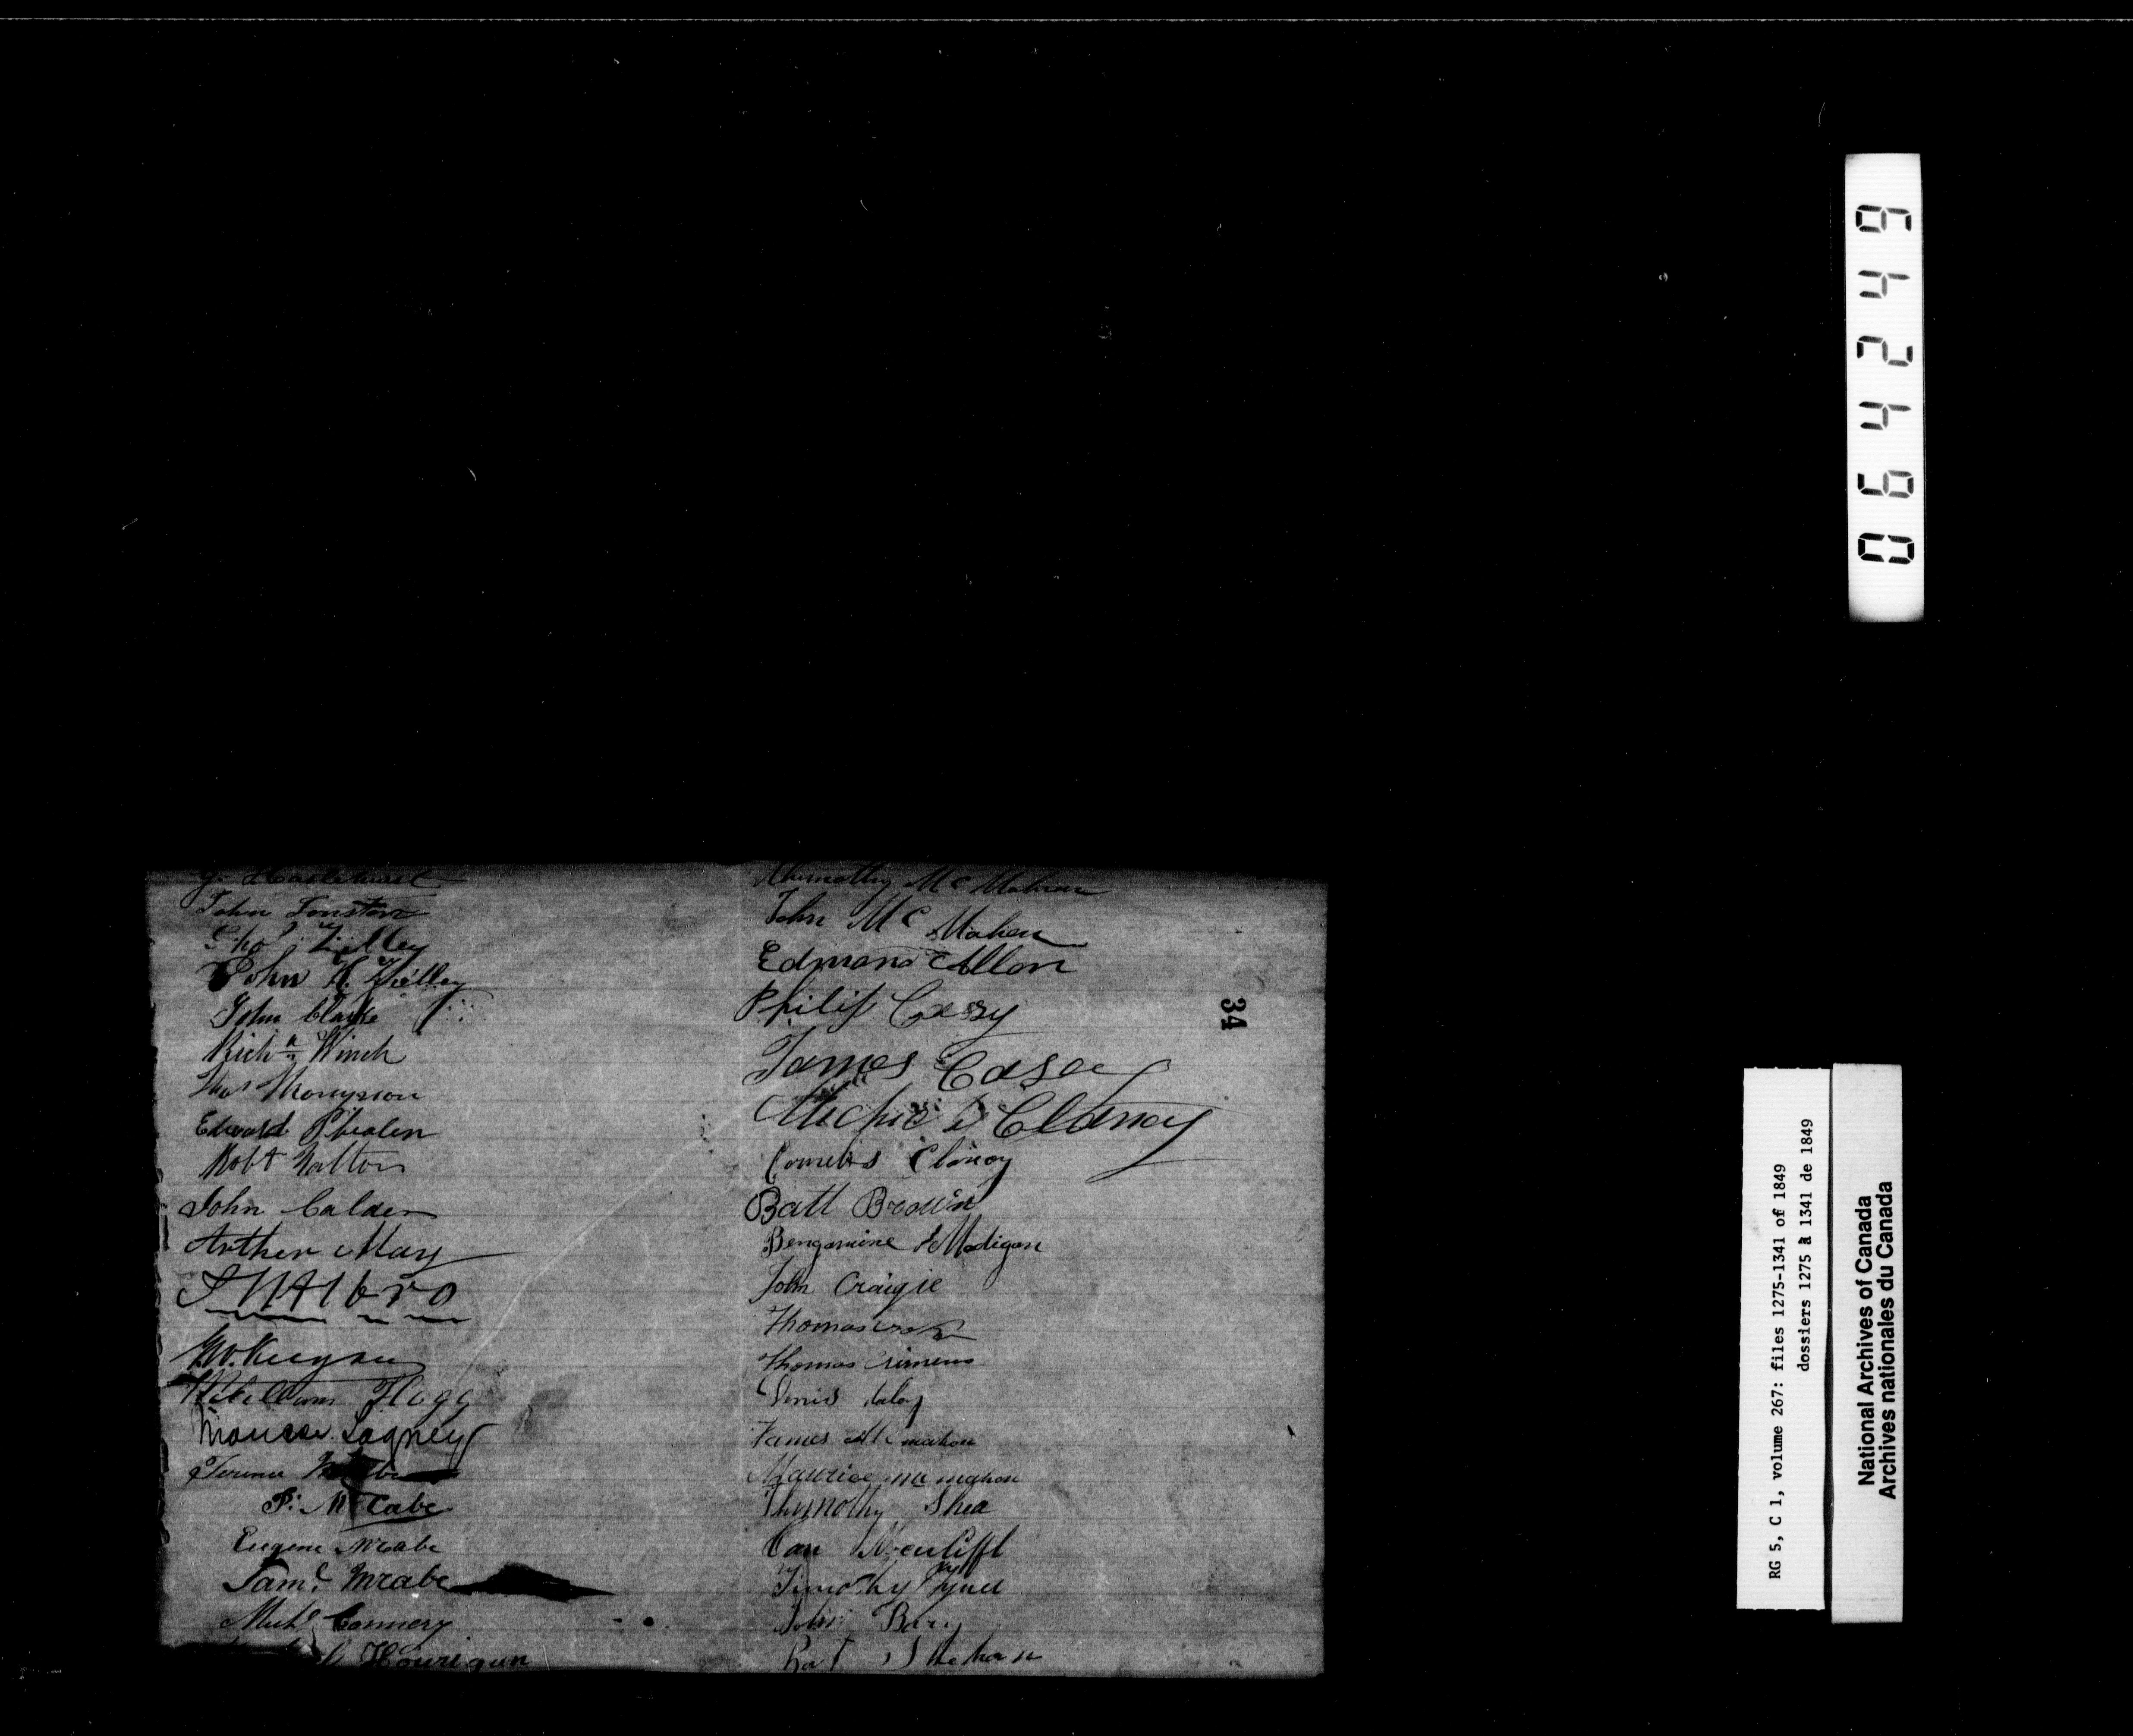 John Fonston
Thos Zilley
John H. Zilley
John Clarke
Richd Winch
Thos Thompson
Edward Phealen
Robt Nalton
John Calder
Arther May
William Flogg
Terence
P. McCabe
Eugene McCabe
Saml McCabe
Michl Connery
Hourigun
Thimothy Mc Mahan
John Mc Mahen
Edmond Allon
Philip Casy
James Casey
Clancy
Cornelis Clancy
Batt Brown
Bengamine Madigan
John Craigie
Thomas
Thomas Crimens
Denis daley
James Mc mahon
Maurice mc mahon
Thymothy Shea
Dan Mcauliffl
Timothy
John Bary
Pat Shehan
34
064249
RG 5, C 1, volume 267: files 1275-1341 of 1849
dossiers 1275 à 1341 de 1849
National Archives of Canada
Archives nationales du Canada